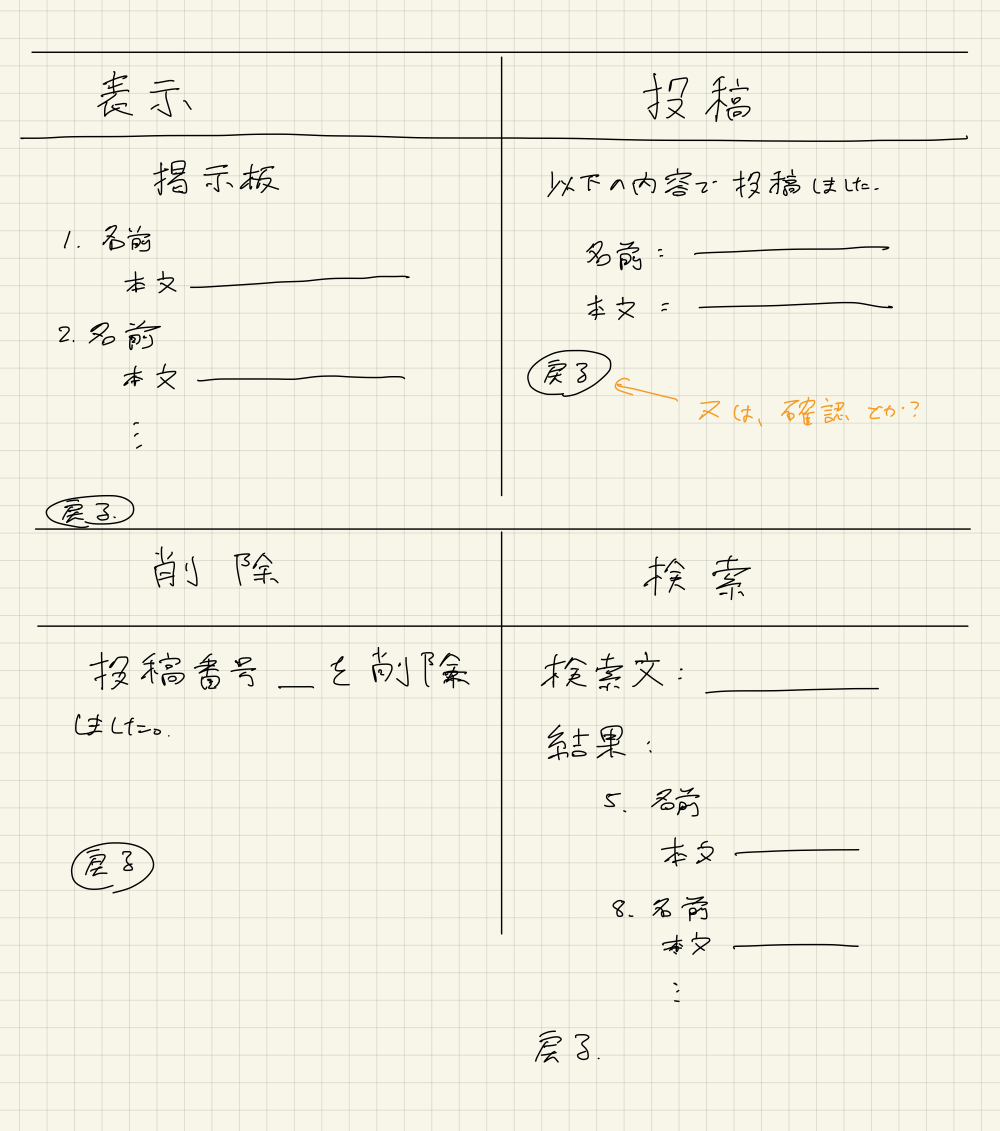 表示
掲示板
1. 名前
本文
2. 名前
本文
⋮
戻る
投稿
以下の内容で投稿しました.
名前:
本文:
戻る
又は、確認とか?
削除
投稿番号 _ を削除
しました。
戻る
検索
検索文:
結果:
5. 名前
本文
8. 名前
本文
⋮
戻る.